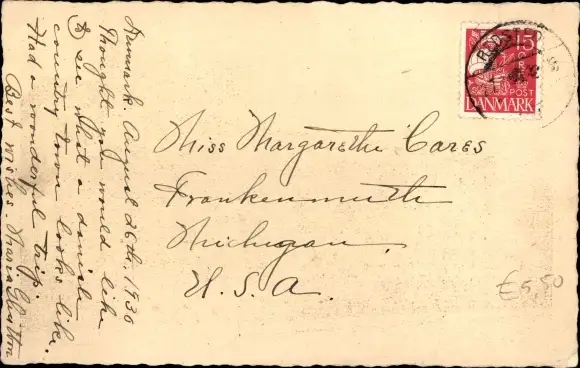 Denmark. August 26th, 1930
Thought you would like
to see what a danish
country town looks like.
Had a wonderful trip.
Best wishes.
Miss Margarethe Cares
Frankenmuth
Michigan.
U.S.A.
15
POST
DANMARK
£5,50